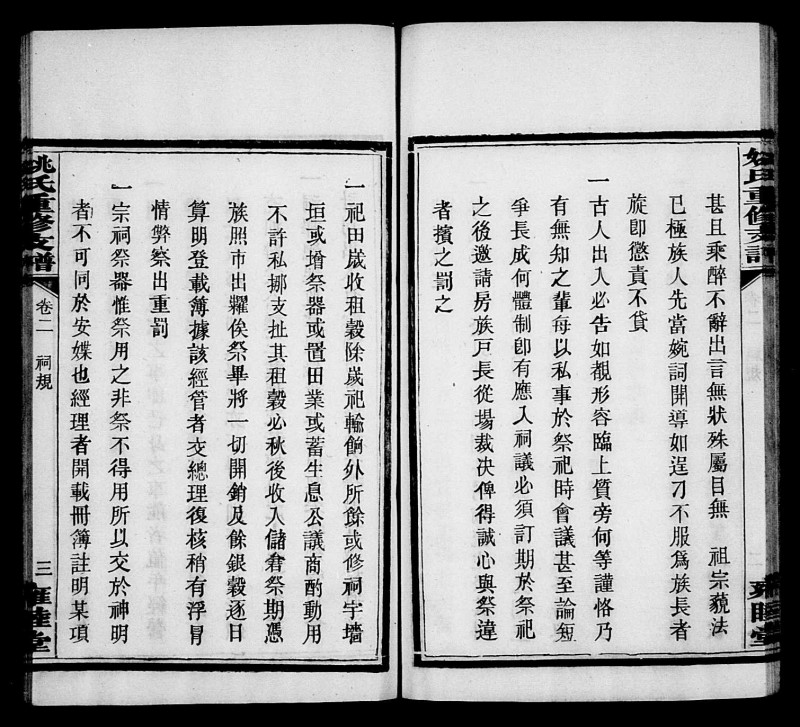 甚且乘醉不辭出言無狀殊屬目無 祖宗藐法
已極族人先當婉詞開導如逞刁不服爲族長者
旋卽懲責不貸
一古人出入必告如覩形容臨上質旁何等謹恪乃
有無知之輩每以私事於祭祀時會議甚至論短
爭長成何體制卽有應入祠議必須訂期於祭祀
之後邀請房族戸長從場裁决俾得誠心與祭違
者擯之罰之
一祀田嵗收租穀除嵗祀輸餉外所餘或修祠宇墻
垣或增祭器或置田業或蓄生息公議商酌動用
不許私挪支扯其租穀必秋後收入儲倉祭期憑
族照市出糶俟祭畢將一切開銷及餘銀穀逐日
算明登載簿據該經管者交總理復核稍有浮冒
情弊察出重罰
一宗祠祭器惟祭用之非祭不得用所以交於神明
者不可同於安媟也經理者開載冊簿註明某項
姚氏重修支譜
卷二 祠規
三
雍睦堂